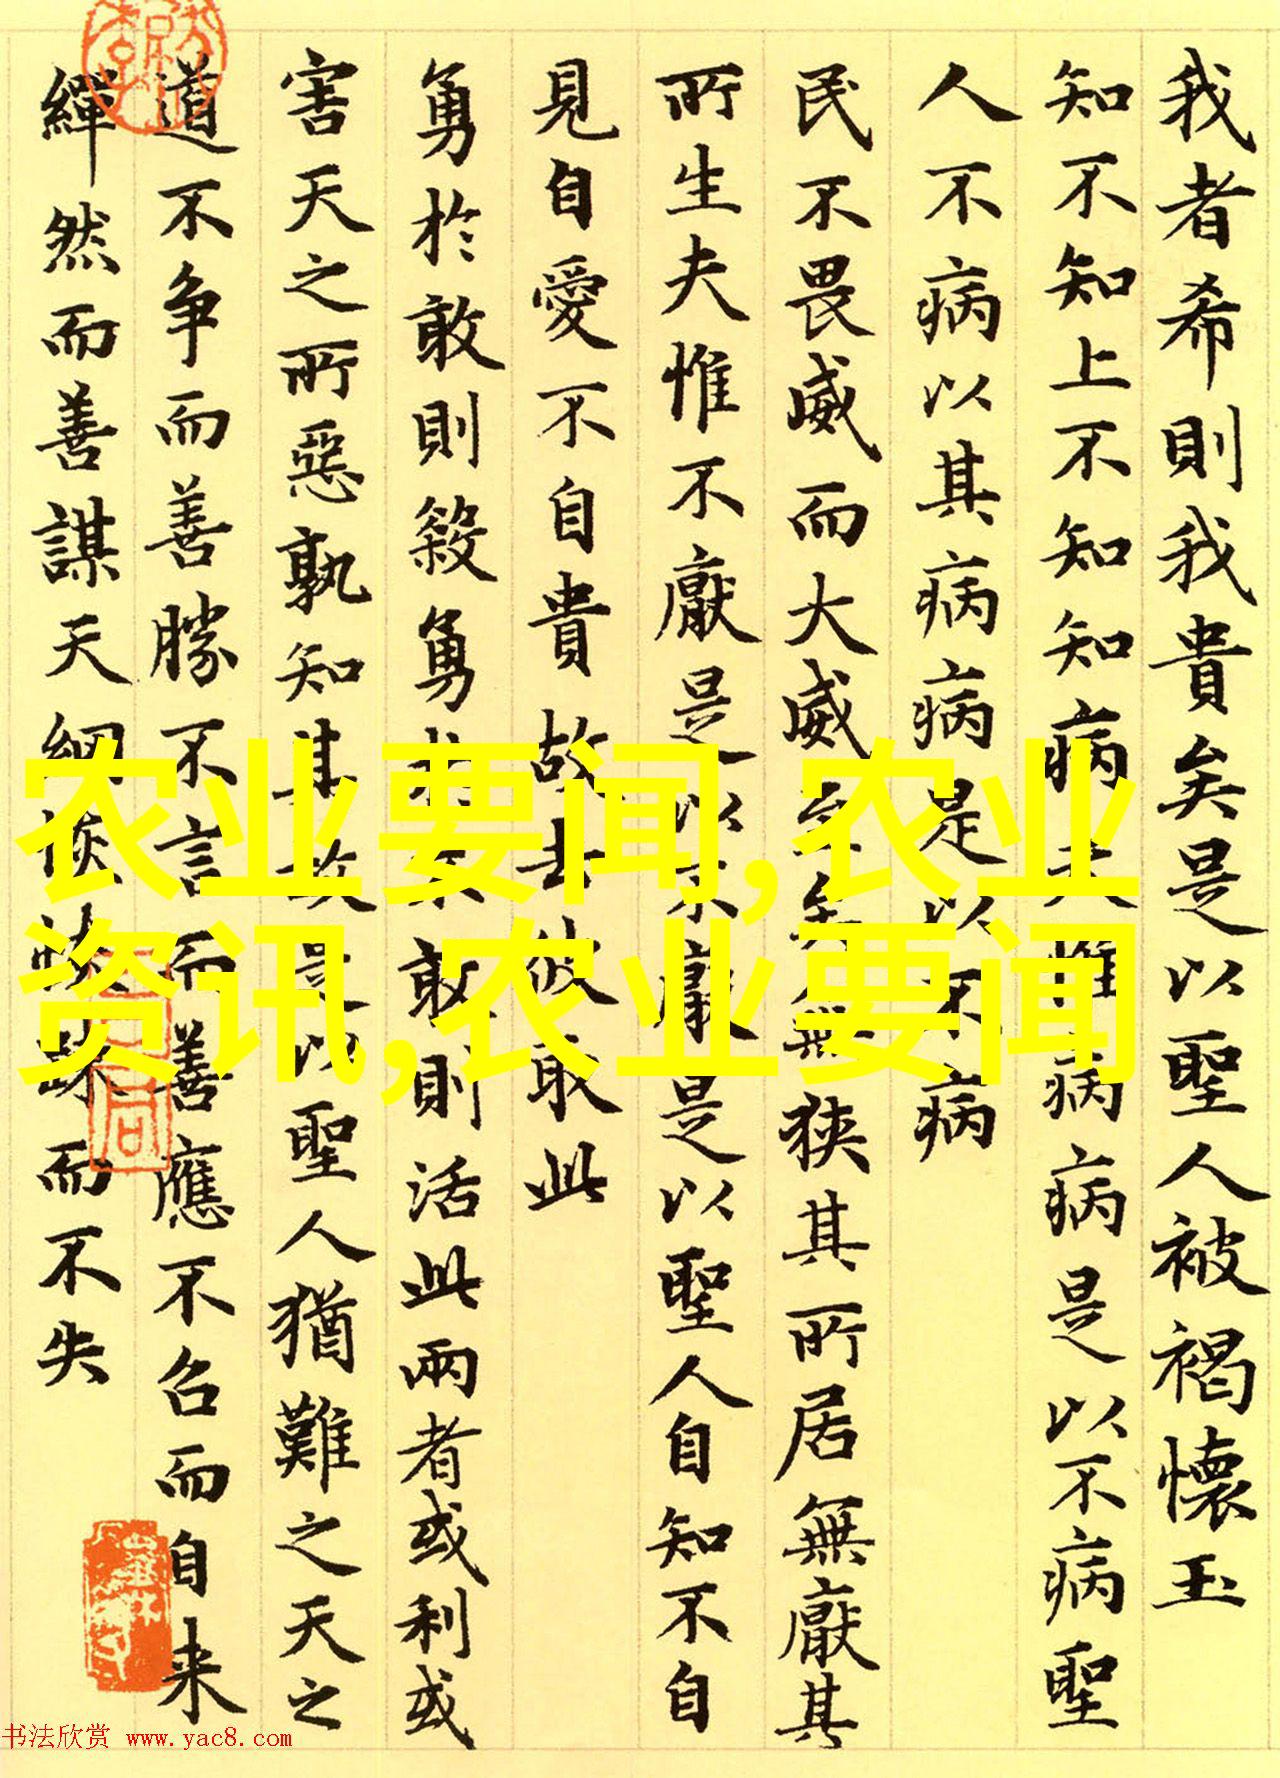 我者希則我貴矣是以聖人被褐懷玉
知不知上不知知病夫惟病病是以不病聖
人不病以其病病是以不病
民不畏威而大威至矣無狹其所居無厭其
所生夫惟不厭是以不厭是以聖人自知不自
見自愛不自貴故去彼取此
勇於敢則殺勇於不敢則活此兩者或利或
害天之所惡孰知其故是以聖人猶難之天之
道不争而善勝不言而善應不召而自来
繟然而善謀天網恢恢踈而不失
农业要闻,农业
资讯,农业要闻
书法欣赏 www.yac8.com